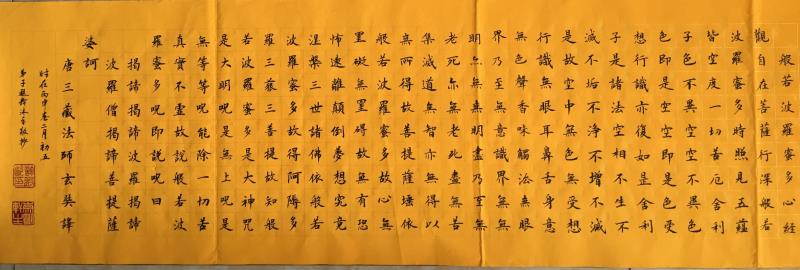 般若波羅蜜多心經
觀自在菩薩行深般若
波羅蜜多時照見五蘊
皆空度一切苦厄舍利
子色不異空空不異色
色即是空空即是色受
想行識亦復如是舍利
子是諸法空相不生不
滅不垢不淨不增不減
是故空中無色無受想
行識無眼耳鼻舌身意
無色聲香味觸法無眼
界乃至無意識界無無
明亦無無明盡乃至無
老死亦無老死盡無苦
集滅道無智亦無得以
無所得故菩提薩埵依
般若波羅蜜多故心無
罣礙無罣礙故無有恐
怖遠離顛倒夢想究竟
涅槃三世諸佛依般若
波羅蜜多故得阿耨多
羅三藐三菩提故知般
若波羅蜜多是大神咒
是大明呪是無上呪是
無等等呪能除一切苦
真實不虛故說般若波
羅蜜多呪即說呪曰
揭諦揭諦波羅揭諦
波羅僧揭諦菩提薩
婆訶
唐三藏法師玄奘譯
時在丙申春二月初五
弟子敬抄